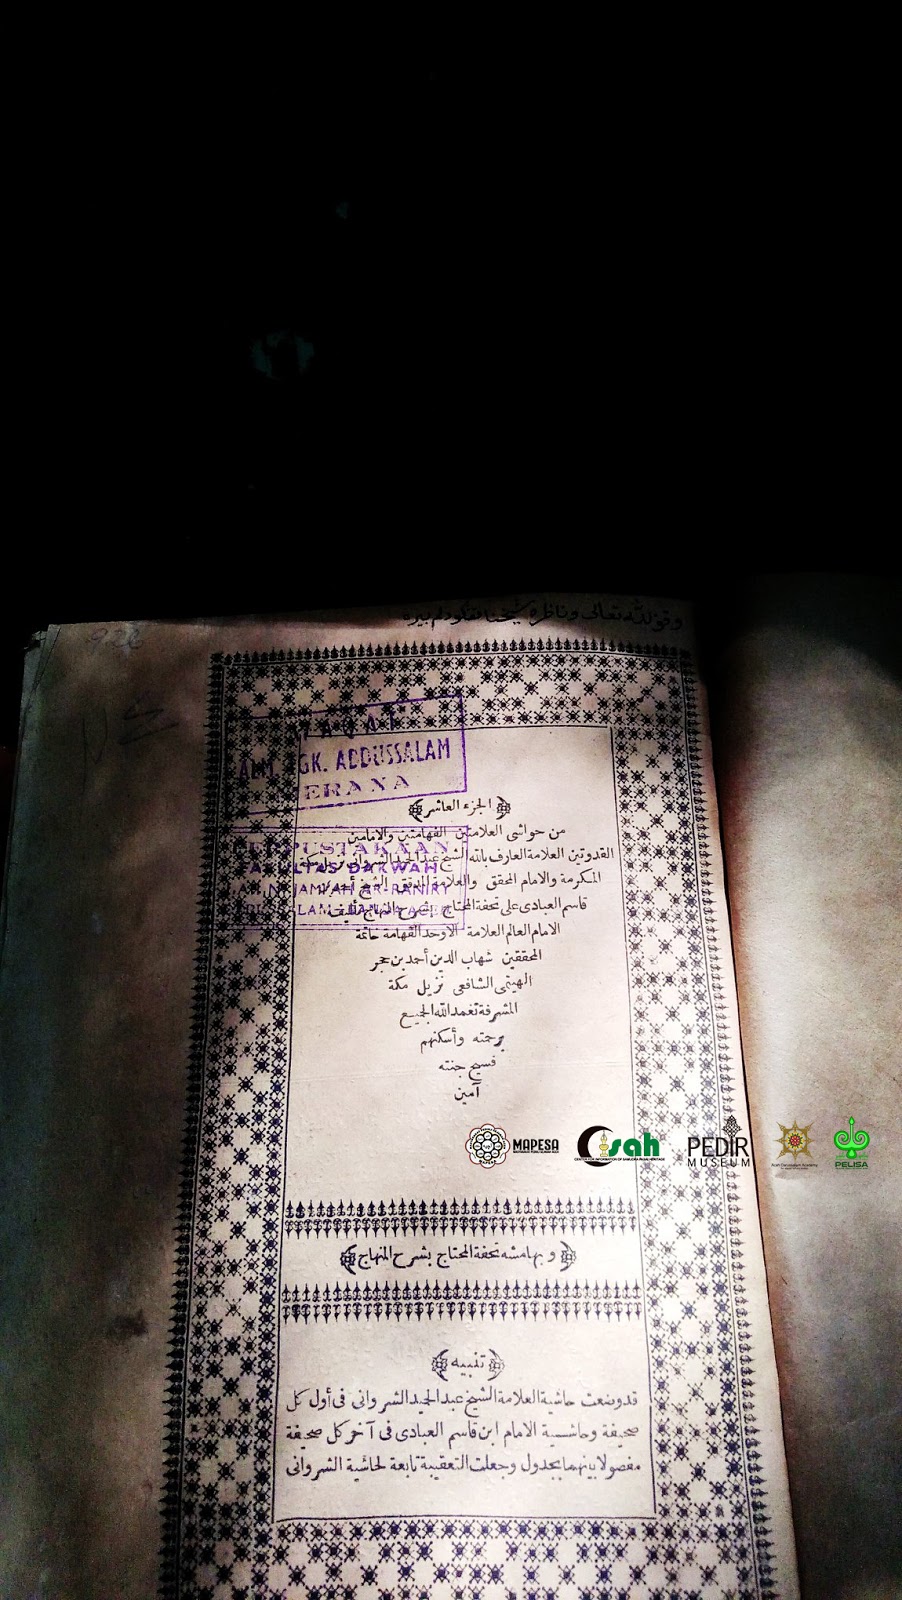 وقف لله تعالى وناظره شيخنا
الجزء العاشر
من حواشي العلامتين الفهامتين والامامين
القدوتين العلامة العارف بالله الشيخ عبد الحميد الشرواني نزيل مكة
المكرمة والامام المحقق والعلامة المدقق الشيخ أحمد بن
قاسم العبادى على تحفة المحتاج بشرح المنهاج تأليف
الامام العالم العلامة الاوحد الفهامة خاتمة
المحققين شهاب الدين أحمد بن حجر
الهيتمى الشافعى نزيل مكة
المشرفة تغمد الله الجميع
برحمته وأسكنهم
فسيح جنته
آمين
WAQAF
ALM. TGK. ABDUSSALAM
PERPUSTAKAAN
FAKULTAS DAKWAH
IAIN JAMI'AH AR-RANIRY
DARUSSALAM-BANDA ACEH
MAPESA
Cisah
PEDIR
MUSEUM
PELISA
وبهامشه تحفة المحتاج بشرح المنهاج
تنبيه
قد وضعت حاشية العلامة الشيخ عبد الحميد الشروانى فى أول كل
صحيفة وحاشية الامام ابن قاسم العبادى فى آخر كل صحيفة
مفصولا بينهما بجدول وجعلت التعقيبة تابعة لحاشية الشروانى